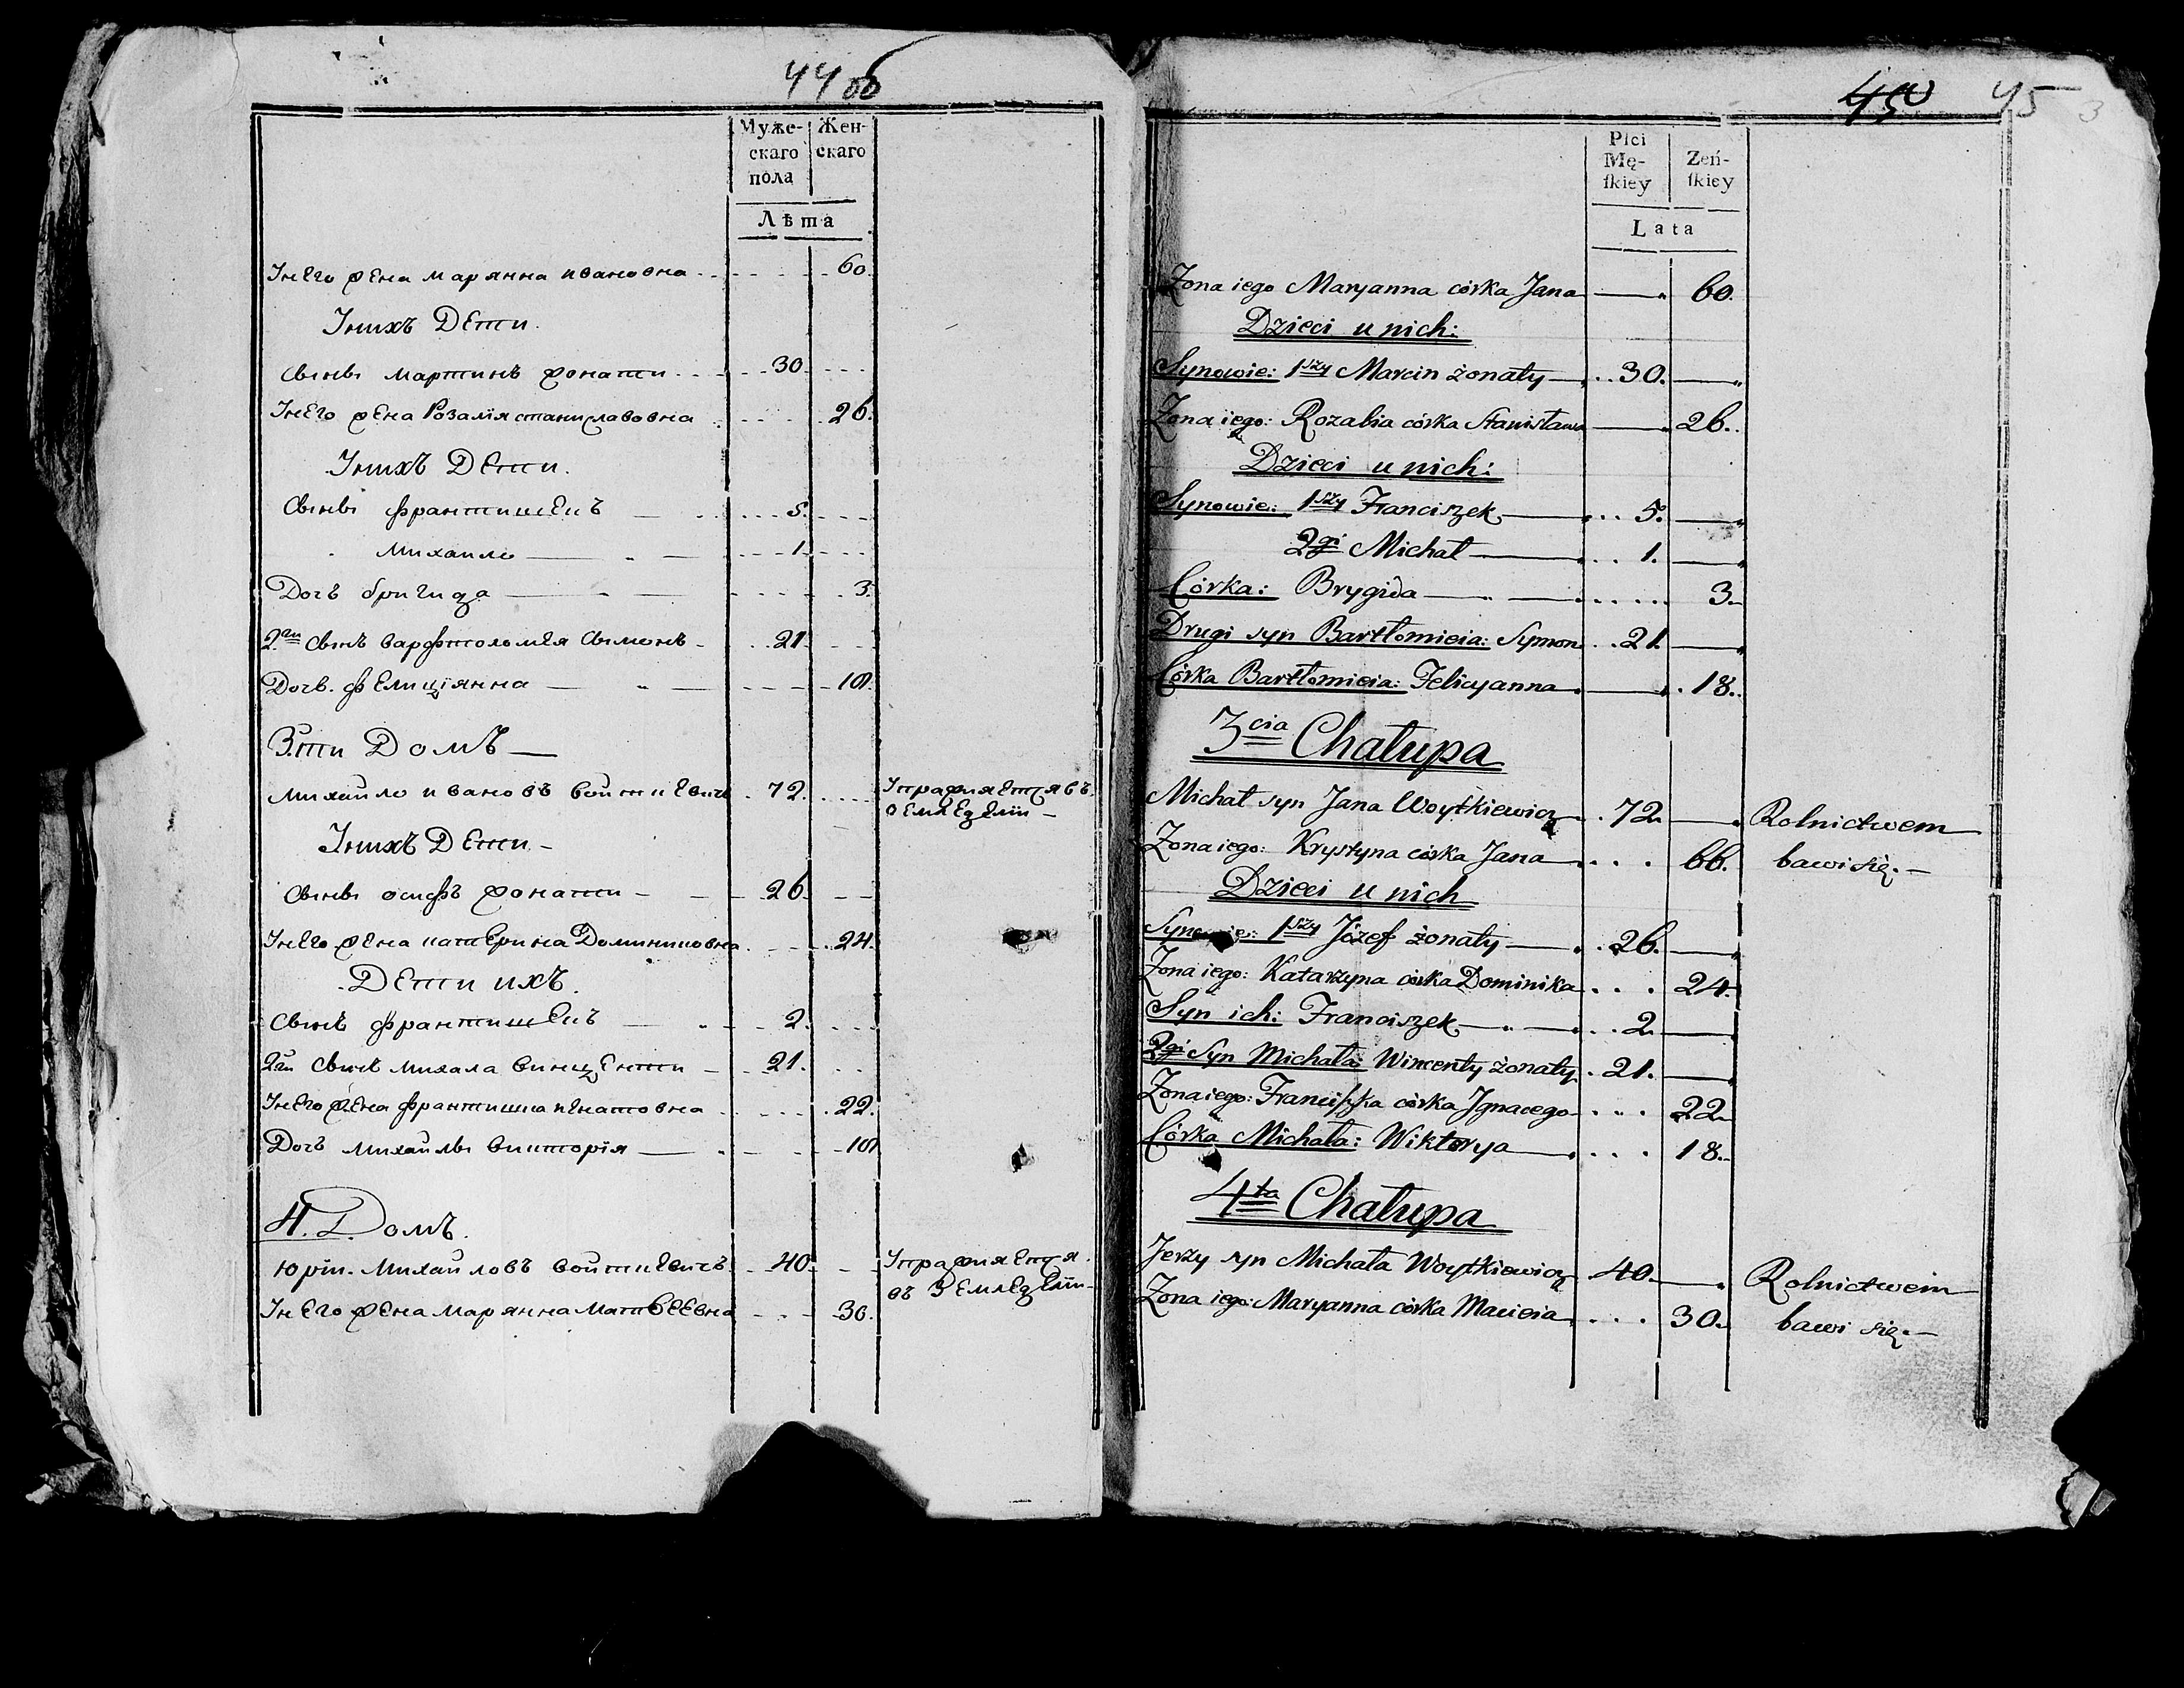 44 об
Муже-
скаго
пола
Жен-
скаго
Лѣта
Унего жена марянна ивановна 60.
Унихъ Дети.
Сынъ мартинъ жонати 30
Унего жена Розалія станиславовна 26.
Унихъ Дети.
Сынъ франтишекъ 5.
михаило 1
Дочъ бригида 3.
2.ги Сынъ варфтоломея Сымонъ 21
Дочъ. фелиціянна 18.
3.ти Домъ
михаило ивановъ воиткевичъ 72. Упражняется въ
земледелiи
Унихъ Дети
Сынъ осифъ жонати 26.
Унего жена катерина Доминиковна 24.
Дети ихъ.
Сынъ франтишекъ 2.
2ги Сынъ михала винценти 21.
Унего жена франтишка игнатовна 22.
Дочъ михаилы викторія 18
4. Домъ.
Юрiи. михаиловъ воиткевичъ 40. Упражняется
въ Земледелiи
Унего жена марянна матвеевна 30.
45
3
Plci
Mę-
ſkiey
Zeń-
ſkiey
Lata
Zona iego Maryanna córka Jana 60.
Dzieci u nich:
Synowie: 1szy Marcin żonaty 30.
Zona iego: Rozalia córka Stanisława 26.
Dzieci u nich:
Synowie: 1szy Franciszek 5.
2gi Michał 1.
Córka: Brygida 3.
Drugi syn Bartłomieia: Symon 21.
Córka Bartłomieia: Felicyanna 18.
3cia Chałupa
Michał syn Jana Woytkiewicz 72. Rolnictwem
Zona iego: Krystyna córka Jana 66. bawi się.
Dzieci u nich
Synowie: 1szy Józef żonaty 26.
Zona iego: Katarzyna córka Dominika 24.
Syn ich: Franciszek 2.
2gi Syn Michała: Wincenty żonaty 21.
Zona iego: Franciſzka córka Jgnacego 22
Córka Michała: Wiktorya 18.
4ta Chałupa
Jerzy syn Michała Woytkiewicz 40. Rolnictwem
Zona iego: Maryanna córka Macieia 30. bawi się.